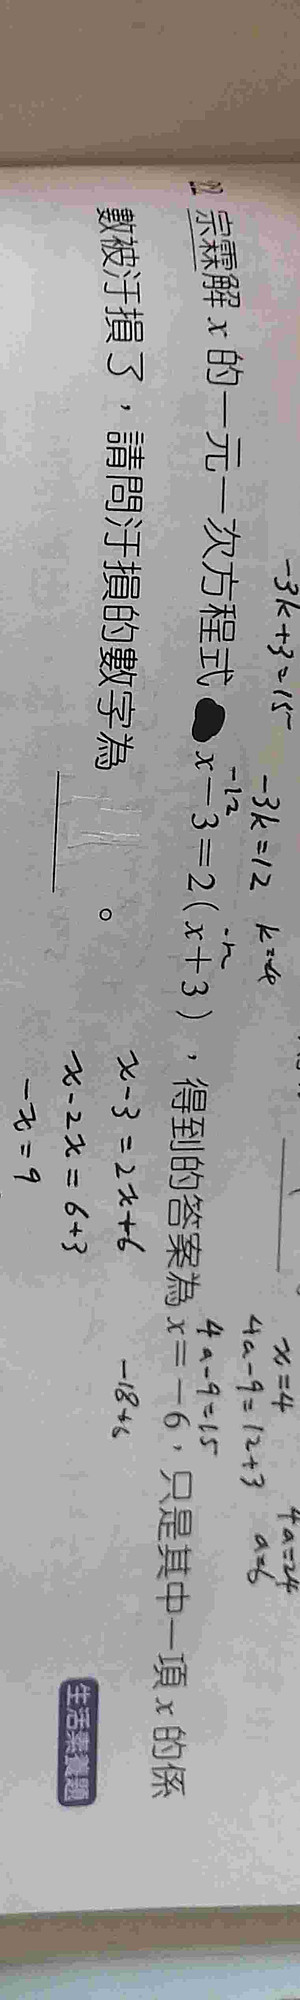 -3k+3=15 -3k=12 k=-4
x=4 4a=24
4a-9=12+3 a=6
4a-9=15
22 宗霖解 x 的一元一次方程式 ● x－3＝2(x＋3)，得到的答案為 x＝－6，只是其中一項 x 的係
-12
數被汙損了，請問汙損的數字為＿＿＿。
x-3=2x+6 -18+6
x-2x=6+3
-x=9
生活素養題